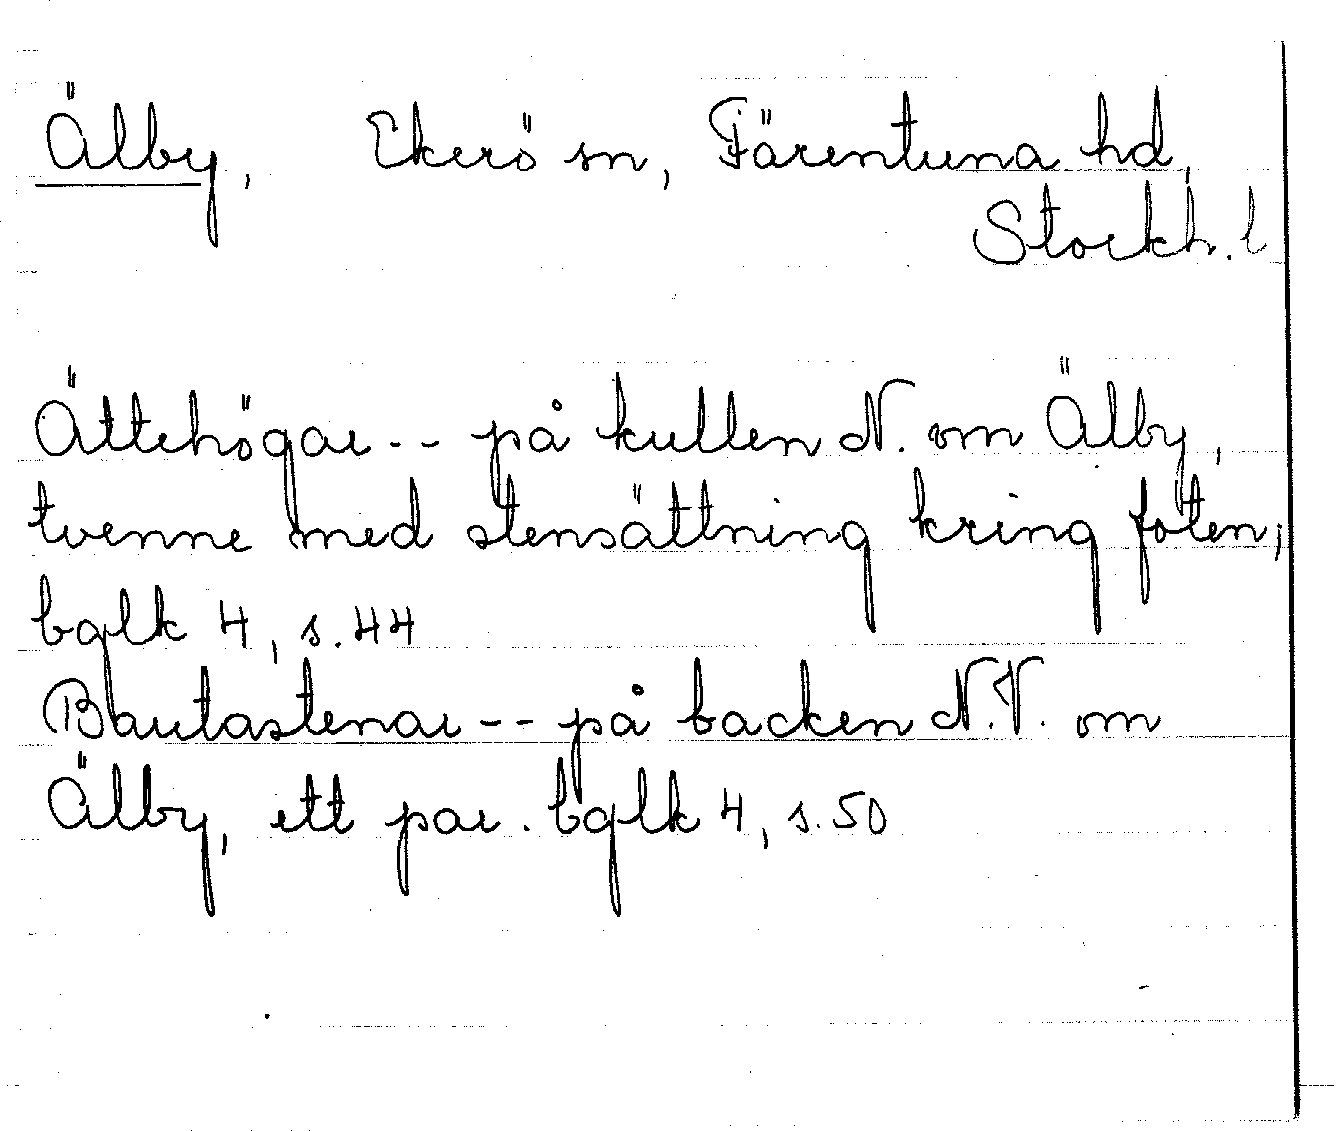 Älby, Ekerö sn, Färentuna hd,
Stockh. l
Ättehögar -- på kullen N. om Älby,
tvenne med stensättning kring foten;
bqlk 4, s. 44
Bautastenar -- på backen N.V. om
Älby, ett par. bqlk 4, s. 50